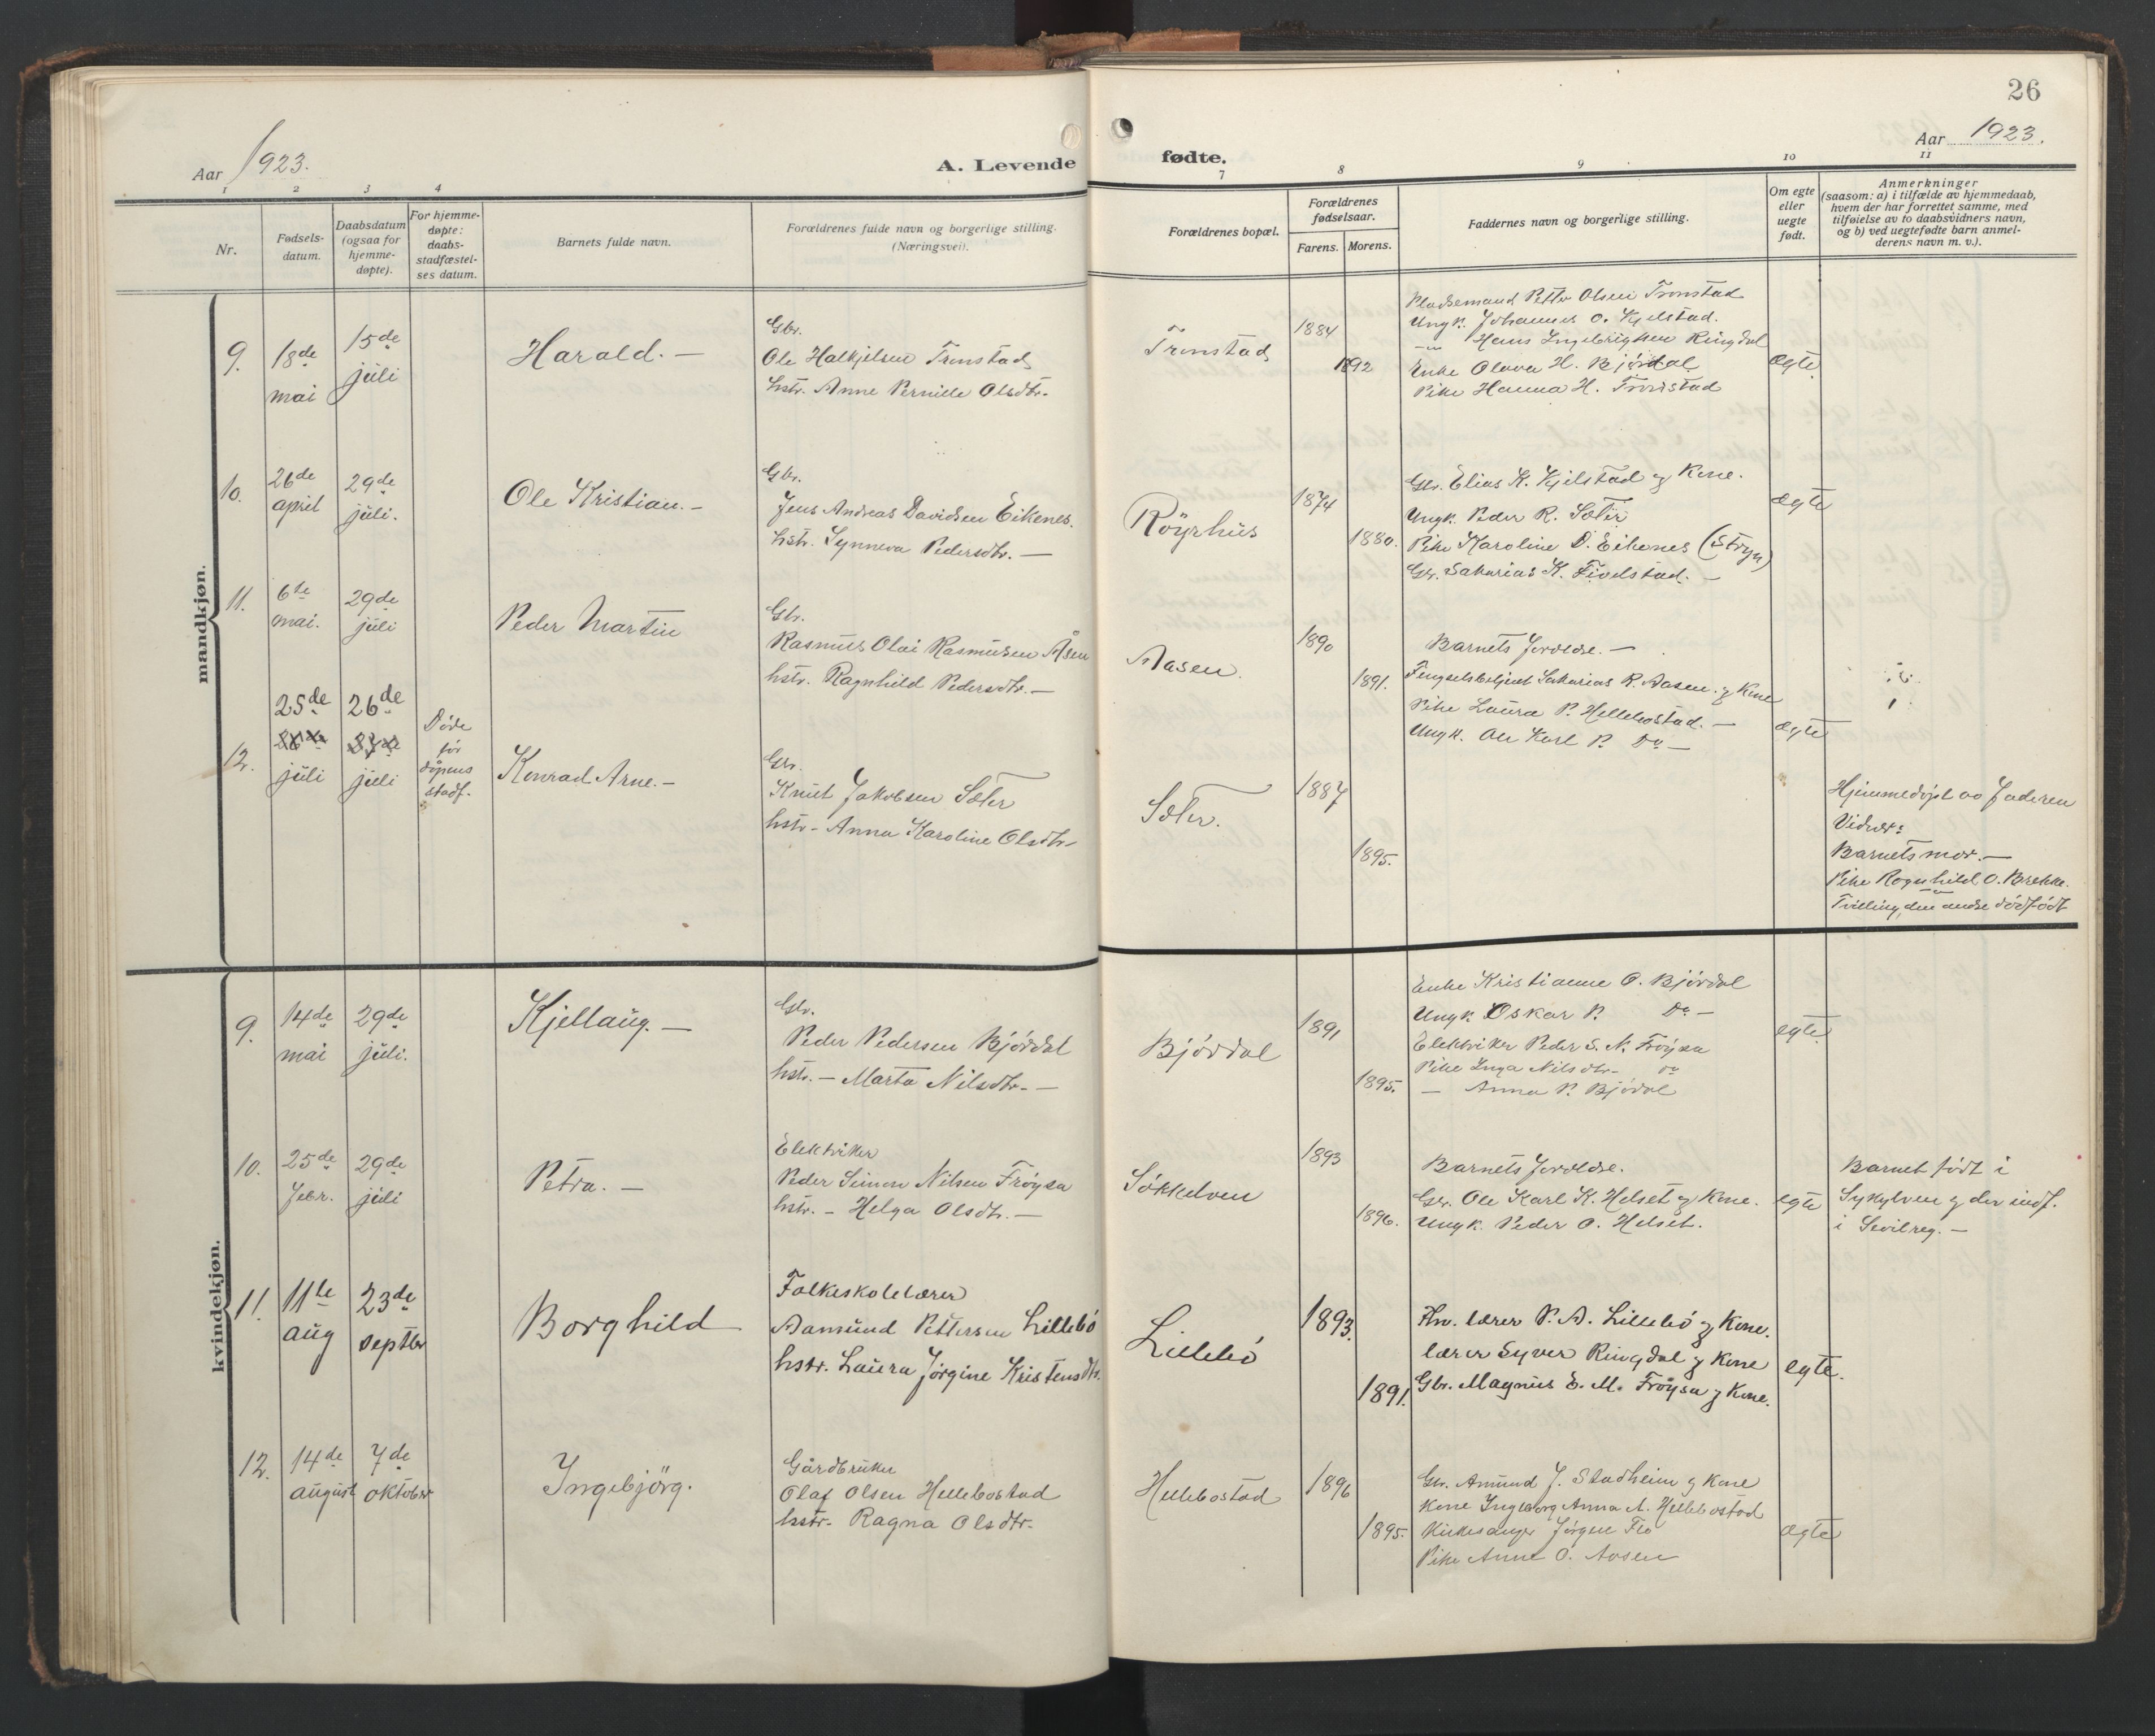 26
Aar 1923.
A. Levende
fødte.
Aar 1923.
1 2 3 4 7 8 9 10 11
Nr.
Fødsels-
datum.
Daabsdatum
(ogsaa for
hjemme-
døpte).
For hjemme-
døpte:
daabs-
stadfæstel-
ses datum.
Barnets fulde navn.
Forældrenes fulde navn og borgerlige stilling.
(Næringsvei).
Forældrenes bopæl.
Forældrenes
fødselsaar.
Farens. Morens.
Faddernes navn og borgerlige stilling.
Om egte
eller
uegte
født.
Anmerkninger
(saasom: a) i tilfælde av hjemmedaab,
hvem der har forrettet samme, med
tilføielse av to daabsvidners navn,
og b) ved uegtefødte barn anmel-
derens navn m. v.).
mandkjøn.
9. 18de mai
15de juli
Harald. —
Gbr.
Ole Halkjelsen Tronstad
hstr. Anne Pernille Olsdtr.
Tronstad
1884
1892
Pladsemand Petter Olsen Tronstad
Ungk. Johannes O. Kjelstad.
—"— Hans Ingebrigtsen Ringdal
Enke Olava H. Bjørdal
Pike Hanna H. Tronstad
ægte
10. 26de april
29de juli.
Ole Kristian. —
Gbr.
Jens Andreas Davidsen Eikenes.
hstr. Synneva Pedersdtr. —
Röyrhus
1874
1880.
Gbr. Elias K. Kjelstad og Kone.
Ungk. Peder R. Sæter
Pike Karoline D. Eikenes (Stryn)
Gbr. Sakarias K. Fivelstad. —
ægte
11. 6te mai.
29de juli
Peder Martin
Gbr.
Rasmus Olai Rasmusen Åsen
hstr. Ragnhild Pedersdtr. —
Aasen.
1890
1891.
Barnets foreldre. —
Fengselsbetjent Sakarias R. Aasen og Kone
Pike Laura P. Hellebostad. —
Ungk. Ole Karl P. Do —
ægte
12. 25de juli
26de juli
Døde
før
döpens
stadf.
Konrad Arne. —
Gbr.
Knut Jakobsen Sæter
hstr. - Anna Karoline Olsdtr.
Sæter.
1887
1895.
Hjemmedöpt av Faderen
Vidner:
Barnets mor. —
Pike Ragnhild O. Brekke.
Tvilling, den andre dödfödt
kvindekjøn.
9. 14de mai
29de juli.
Kjellaug. —
Gbr.
Peder Pedersen Bjørdal
hstr. — Marta Nilsdtr. —
Bjørdal
1891
1895.
Enke Kristianne O. Bjørdal
Ungk. Oskar P. Do —
Elektriker Peder S. N. Fröysa
Pike Inga Nilsdtr. do
— Anna P. Bjørdal
egte
10. 25de febr.
29de juli
Petra. —
Elektriker
Peder Simon Nilsen Fröysa
hstr. - Helga Olsdtr. —
Sökkelven
1893
1896.
Barnets foreldre.
Gbr. Ole Karl K. Helset og Kone.
Ungk. Peder O. Helset.
egte
Barnet født i
Sykylven og der indf.
i Sivilreg. —
11. 11te aug
23de septbr
Borghild
Folkeskolelærer
Aamund Pettersen Lillebö
hstr. Laura Jørgine Kristensdtr.
Lillebö
1893.
1891.
Fhv. lærer P. A. Lillebö og Kone.
lærer Syver Ringdal og Kone
Gbr. Magnus E. M. Fröysa og Kone.
egte.
12. 14de august
7de oktober
Ingebjörg.
Gårdbruker
Olaf Olsen Hellebostad
hstr. Ragna Olsdtr.
Hellebostad
1896
1895.
Gbr. Amund J. Stadheim og Kone
Kone Ingeborg Anna A. Hellebostad
Kirkesanger Jørgen Flo
Pike Anne O. Aasen
ægte